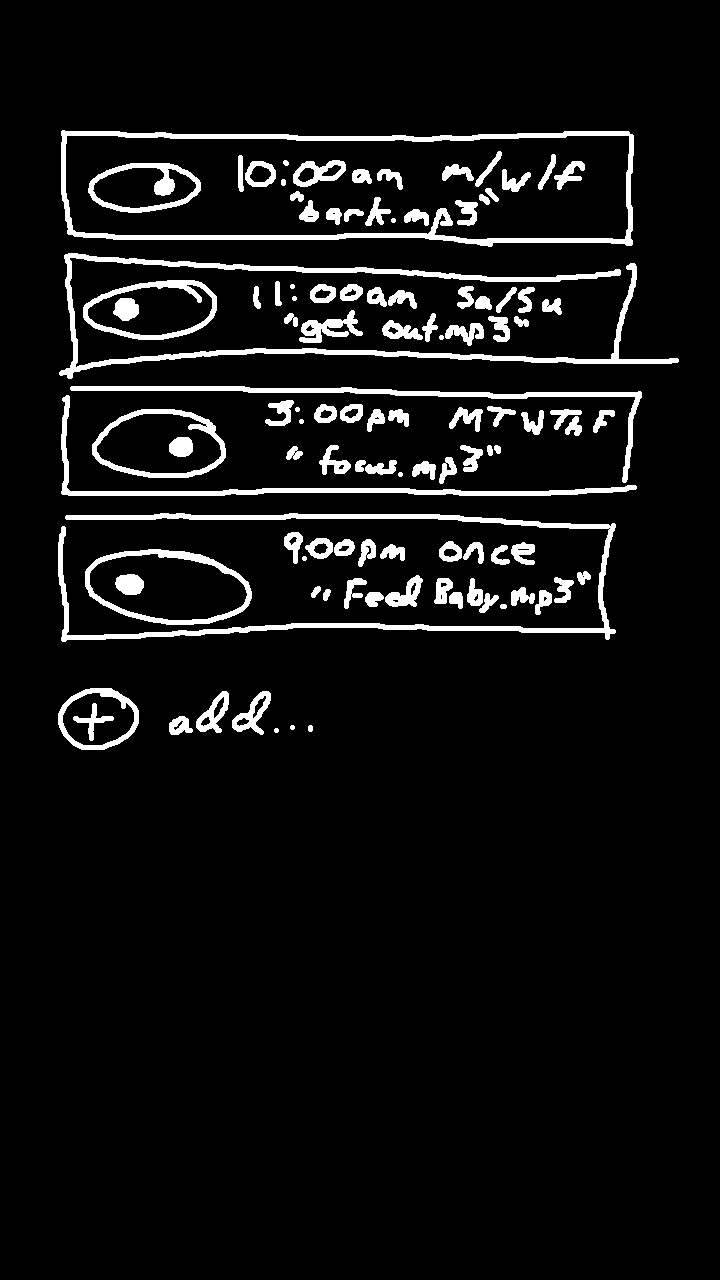 10:00am m/w/f
"bark.mp3"
11:00am Sa/Su
"get out.mp3"
3:00pm MTWThF
"focus.mp3"
9:00pm once
"Feed Baby.mp3"
+ add...